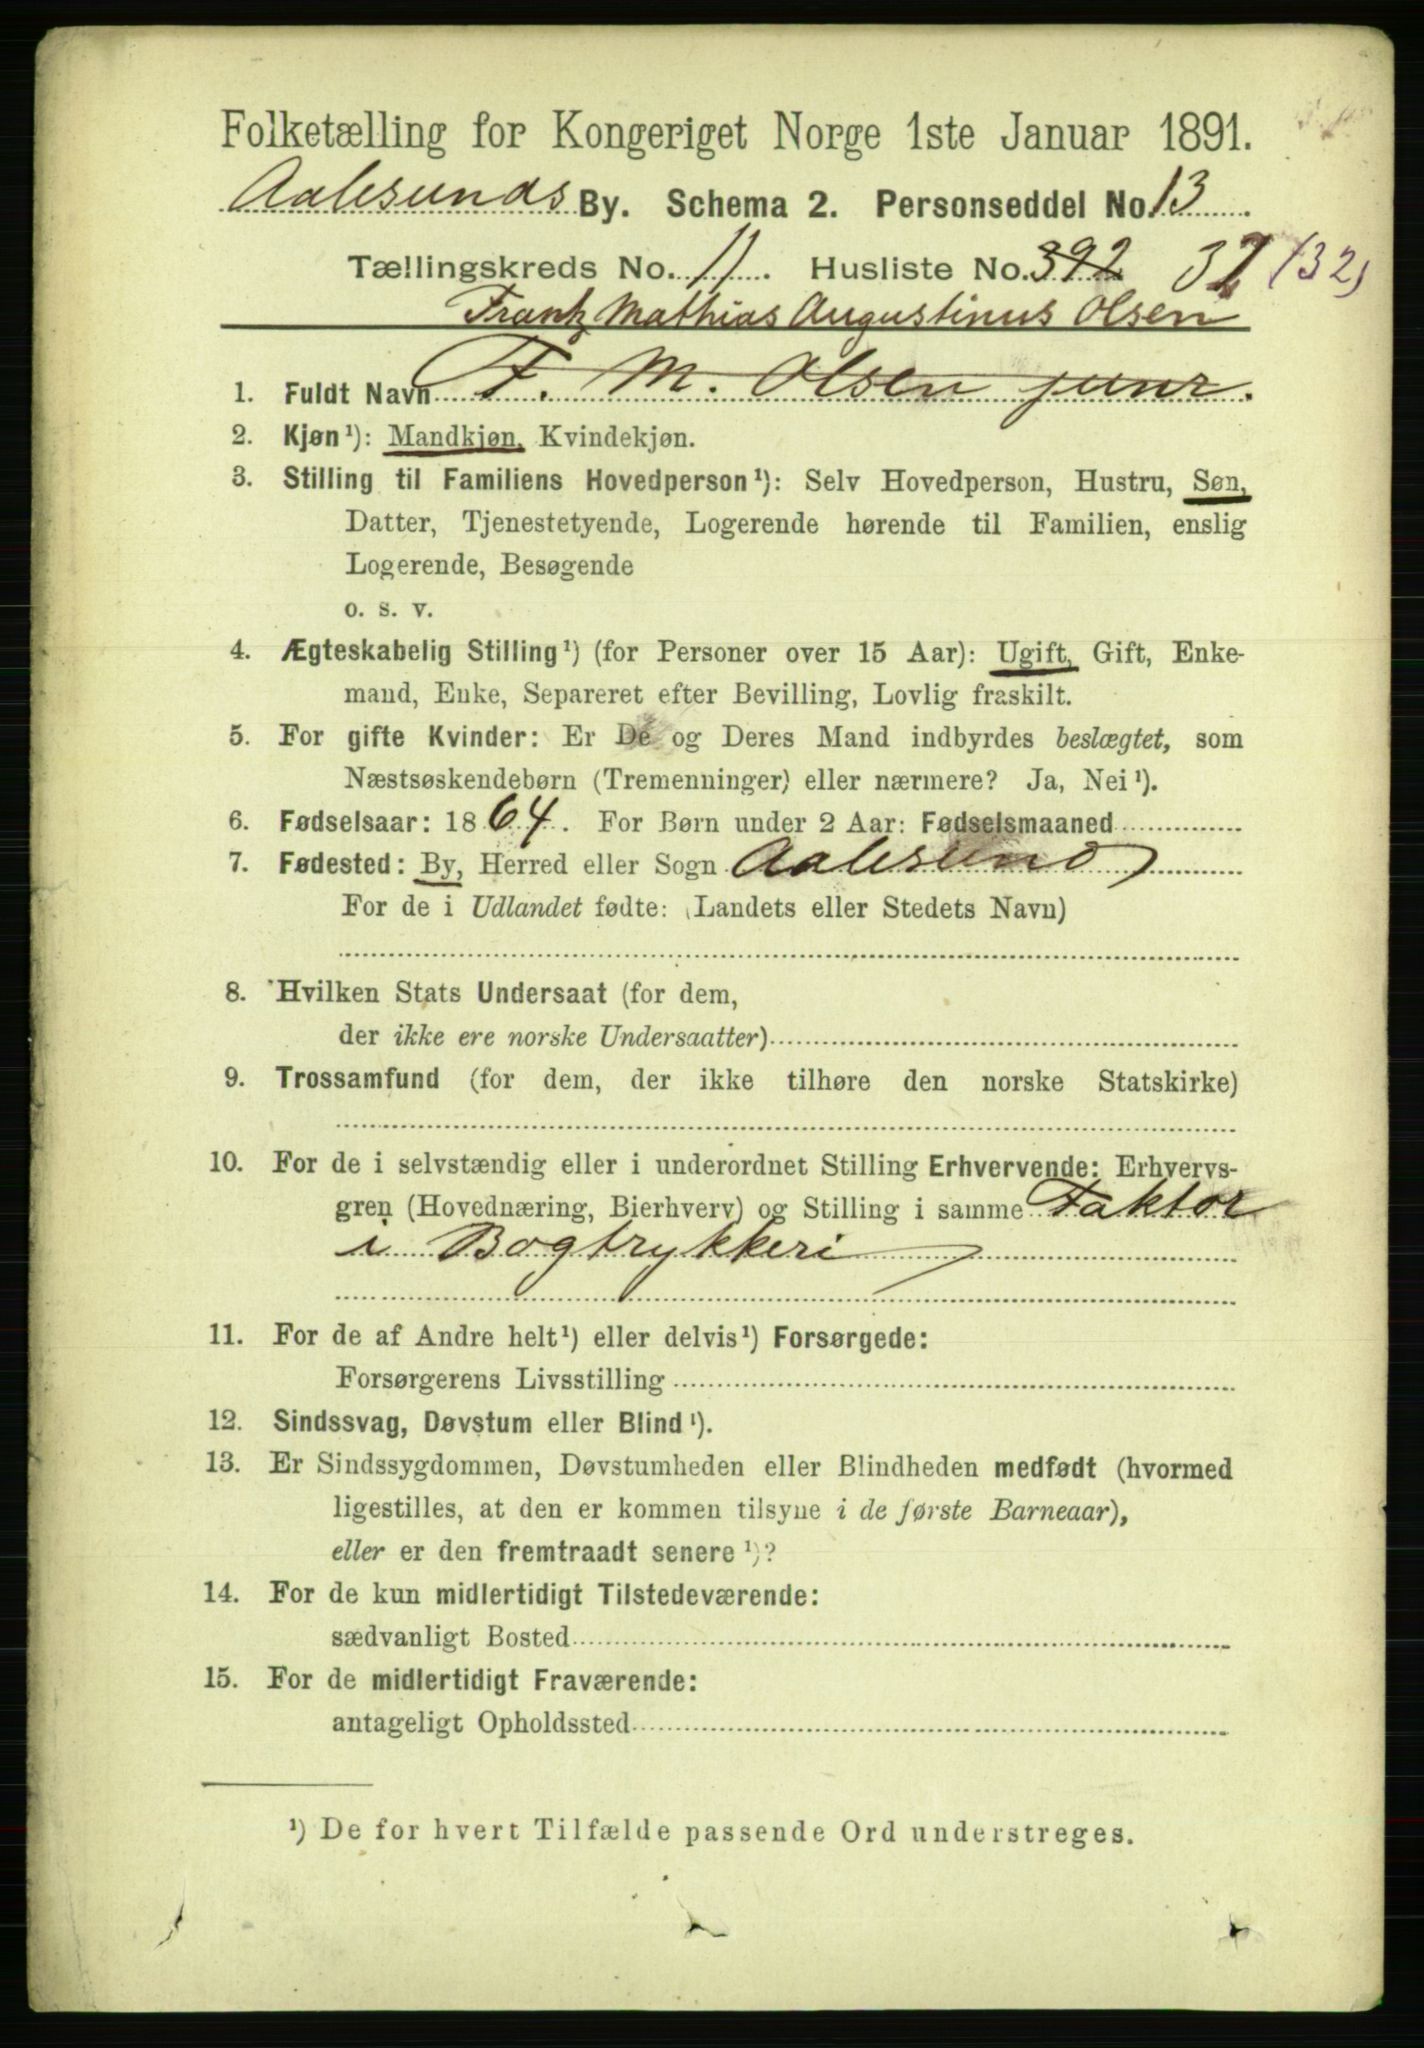 Folketælling for Kongeriget Norge 1ste Januar 1891.
Aalesunds By. Schema 2. Personseddel No. 13
Tællingskreds No. 11. Husliste No. 392 32 (32)
Frantz Mathias Augustinus Olsen
1. Fuldt Navn F. M. Olsen junr.
2. Kjøn¹): Mandkjøn, Kvindekjøn.
3. Stilling til Familiens Hovedperson¹): Selv Hovedperson, Hustru, Søn,
Datter, Tjenestetyende, Logerende hørende til Familien, enslig
Logerende, Besøgende
o. s. v.
4. Ægteskabelig Stilling¹) (for Personer over 15 Aar): Ugift, Gift, Enke-
mand, Enke, Separeret efter Bevilling, Lovlig fraskilt.
5. For gifte Kvinder: Er De og Deres Mand indbyrdes beslægtet, som
Næstsøskendebørn (Tremenninger) eller nærmere? Ja, Nei¹).
6. Fødselsaar: 1864. For Børn under 2 Aar: Fødselsmaaned
7. Fødested: By, Herred eller Sogn Aalesund
For de i Udlandet fødte: (Landets eller Stedets Navn)
8. Hvilken Stats Undersaat (for dem,
der ikke ere norske Undersaatter)
9. Trossamfund (for dem, der ikke tilhøre den norske Statskirke)
10. For de i selvstændig eller i underordnet Stilling Erhvervende: Erhvervs-
gren (Hovednæring, Bierhverv) og Stilling i samme Faktor
i Bogtrykkeri
11. For de af Andre helt¹) eller delvis¹) Forsørgede:
Forsørgerens Livsstilling
12. Sindssvag, Døvstum eller Blind¹).
13. Er Sindssygdommen, Døvstumheden eller Blindheden medfødt (hvormed
ligestilles, at den er kommen tilsyne i de første Barneaar),
eller er den fremtraadt senere¹)?
14. For de kun midlertidigt Tilstedeværende:
sædvanligt Bosted
15. For de midlertidigt Fraværende:
antageligt Opholdssted
¹) De for hvert Tilfælde passende Ord understreges.